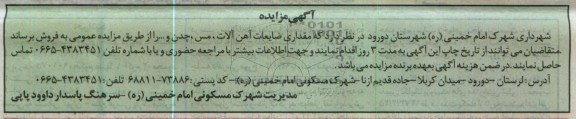 آگهی مزایده
شهرداری شهرک امام خمینی (ره) شهرستان دورود در نظر دارد که مقداری ضایعات آهن آلات ، مس ،چدن و ... را از طریق مزایده عمومی به فروش برساند
.متقاضیان می توانند از تاریخ چاپ این آگهی به مدت ۳ روز اقدام نمایند و جهت اطلاعات بیشتر با مراجعه حضوری و یا با شماره تلفن ۴۳۸۳۴۵۱-۰۶۶۵ تماس
حاصل نمایند.در ضمن هزینه آگهی بعهده برنده مزایده می باشد.
آدرس :لرستان -دورود -میدان کربلا -جاده قدیم ازنا -شهرک مسکونی امام خمینی (ره) - کد پستی :۷۳۸۸۶-۶۸۸۱۱ تلفن :۴۳۸۳۴۵۱-۰۶۶۵
مدیریت شهرک مسکونی امام خمینی (ره) -سرهنگ پاسدار داوود پاپی